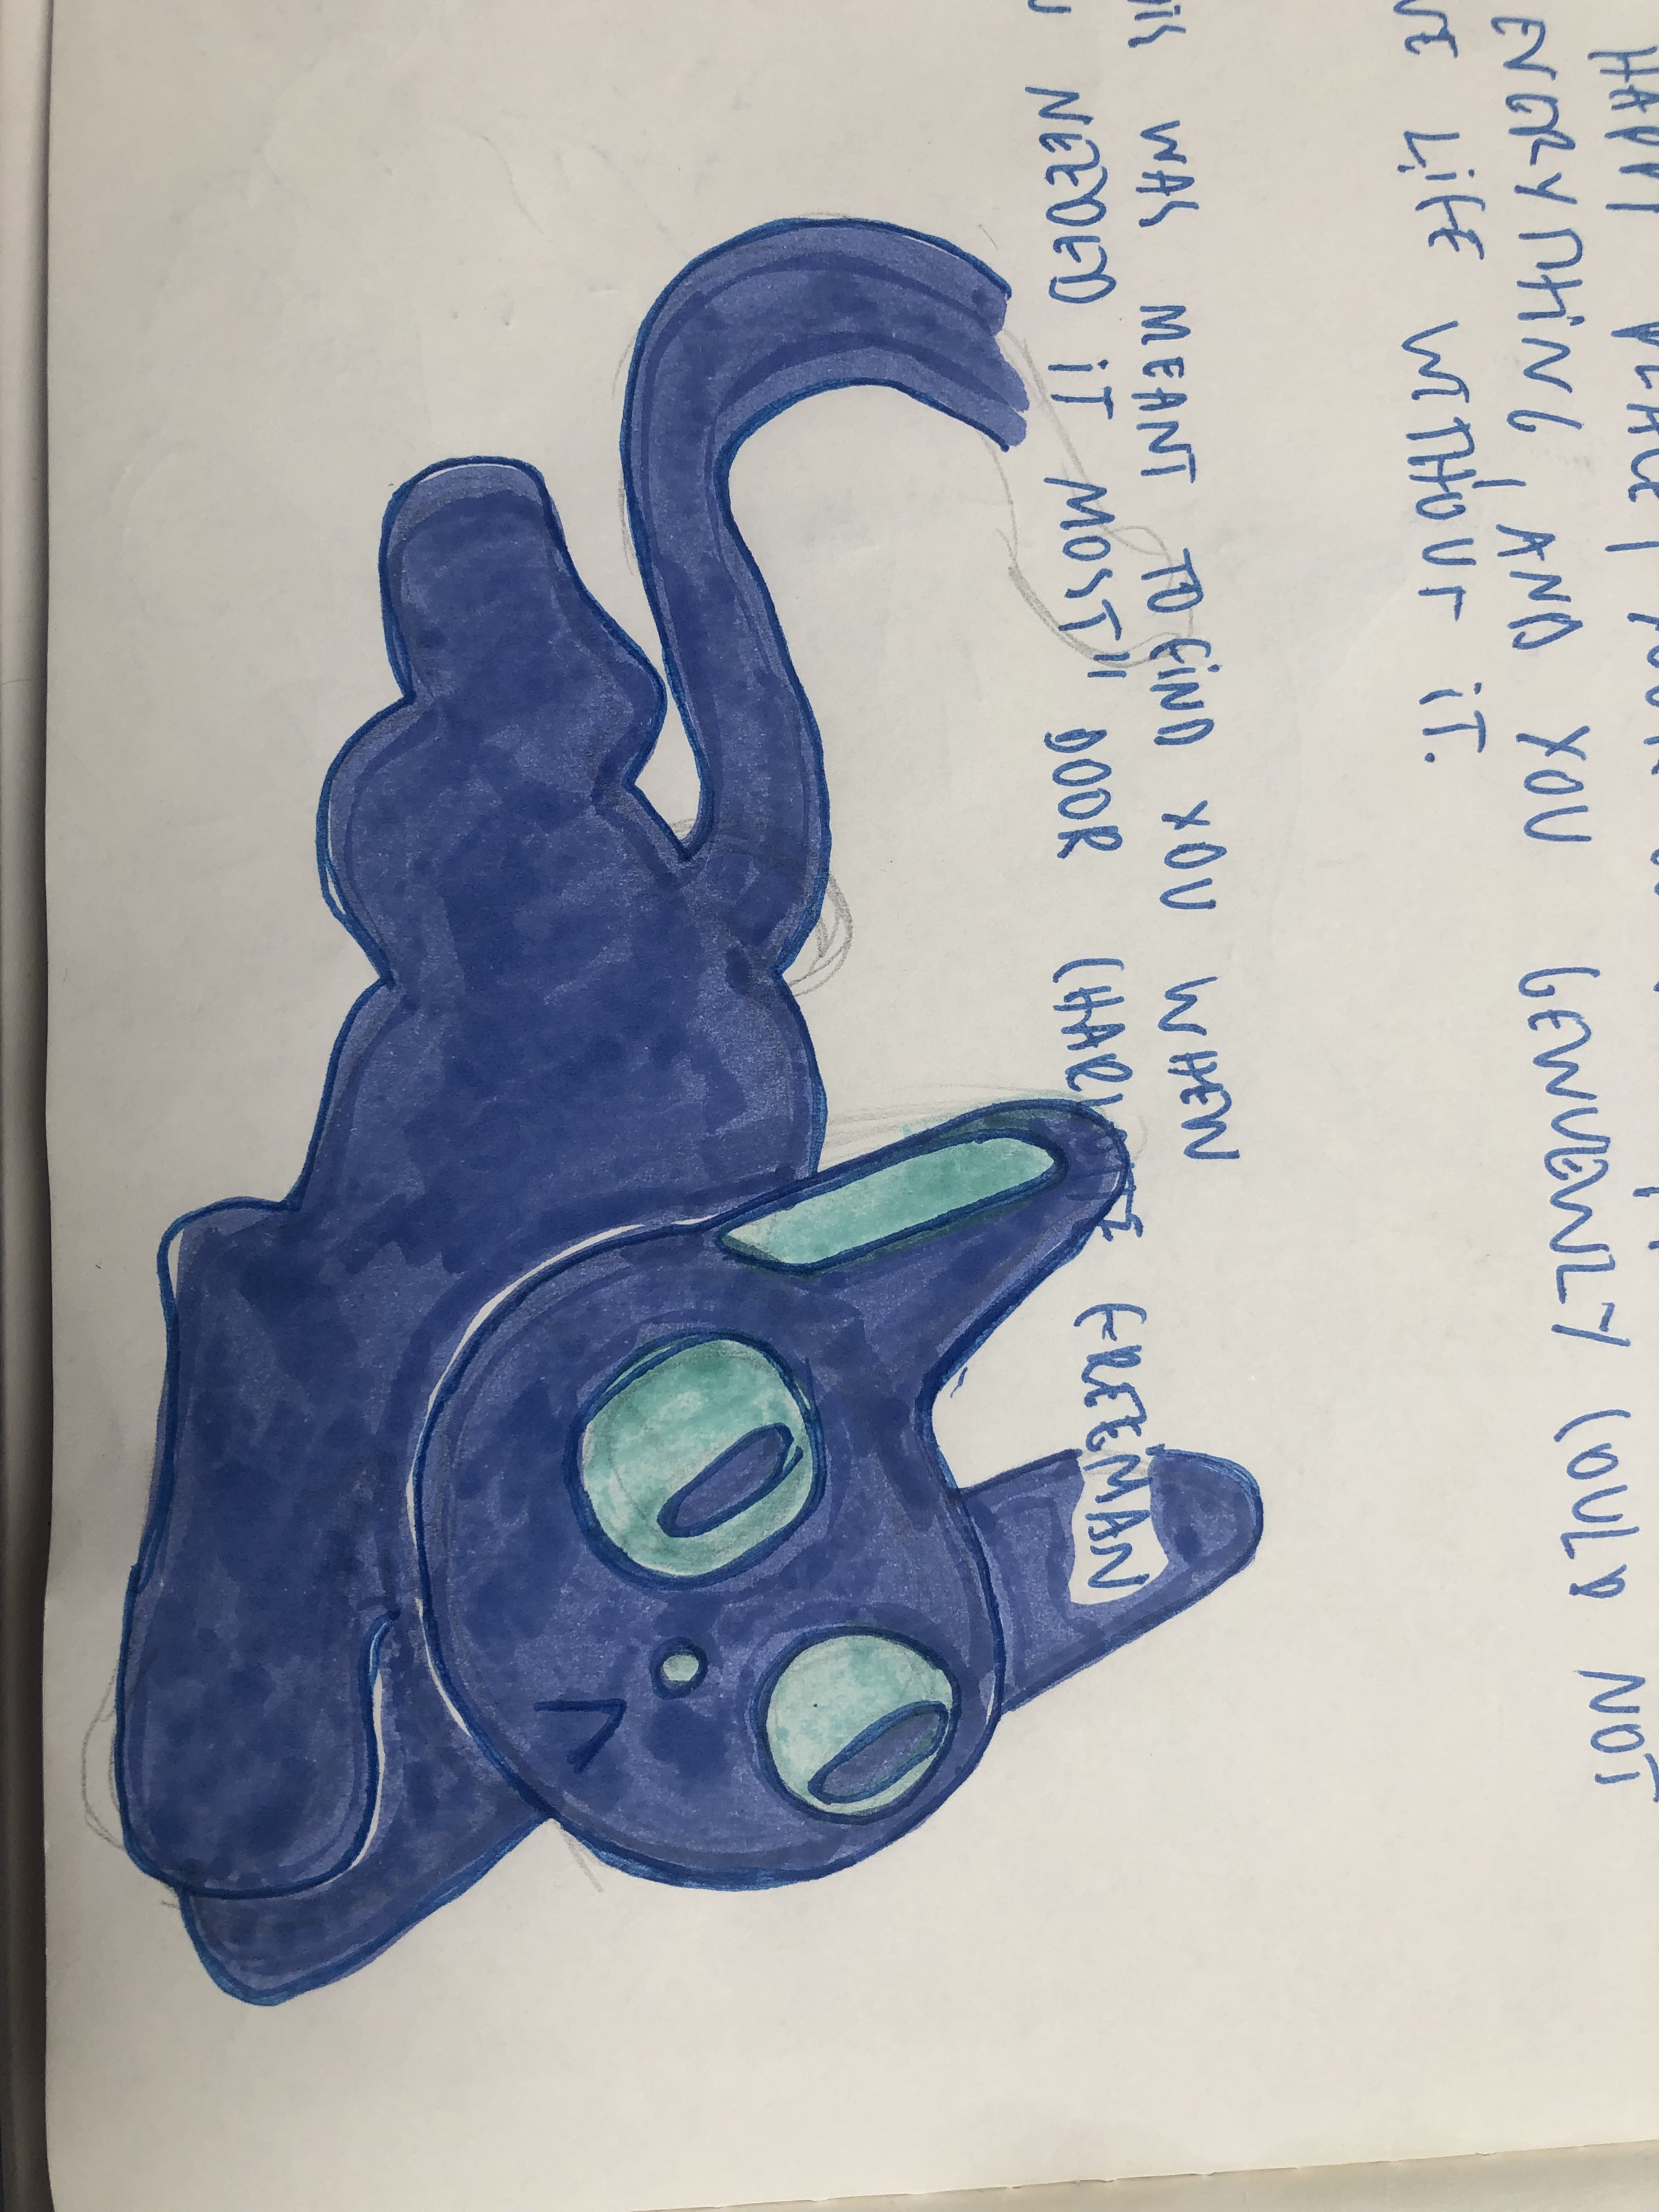 HAPPY PLACE, YOUR
EVERYTHING, AND YOU GENUENLY COULD NOT
LIFE WITHOUT IT.
WAS MEANT TO FIND YOU WHEN
NEEDED IT MOST!! DOOR FREEMAN